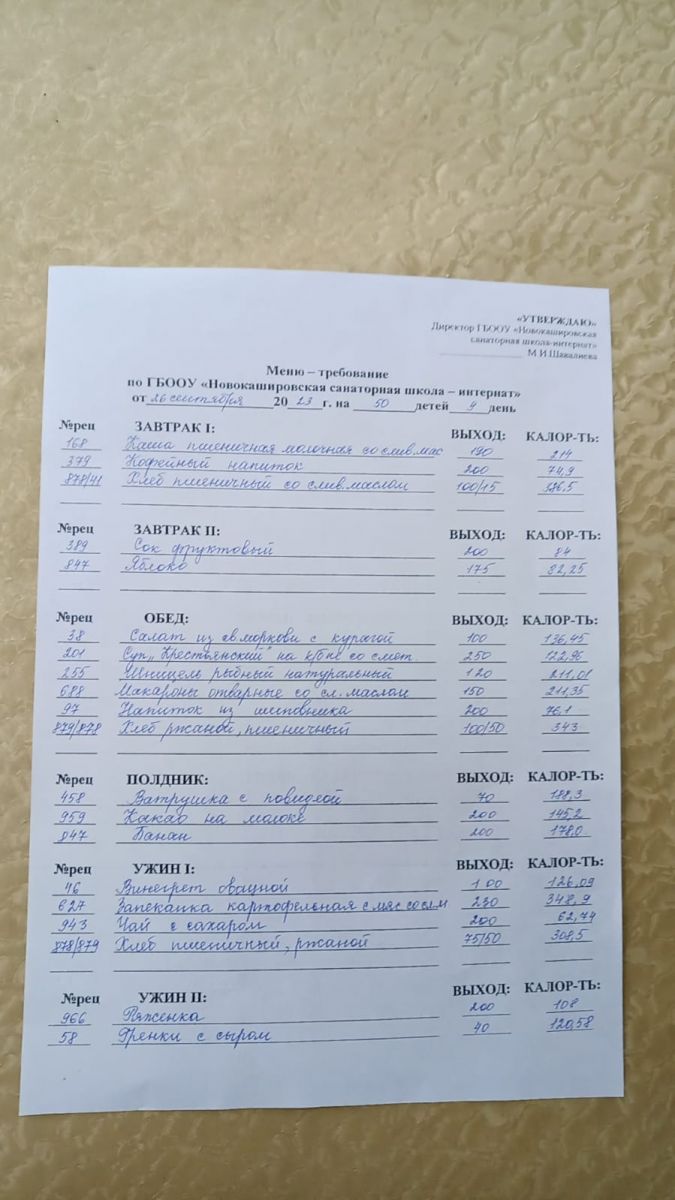 «УТВЕРЖДАЮ»
Директор ГБООУ «Новокашировская
санаторная школа-интернат»
М.И.Шавалиева
Меню – требование
по ГБООУ «Новокашировская санаторная школа – интернат»
от 26 сентября 2023 г. на 50 детей 9 день
№рец ЗАВТРАК I: ВЫХОД: КАЛОР-ТЬ:
168 Каша пшеничная молочная со слив.мас 190 214
379 Кофейный напиток 200 74,9
878/41 Хлеб пшеничный со слив.маслом 100/15 386,5
№рец ЗАВТРАК II: ВЫХОД: КАЛОР-ТЬ:
389 Сок фруктовый 200 84
847 Яблоко 175 82,25
№рец ОБЕД: ВЫХОД: КАЛОР-ТЬ:
38 Салат из св.моркови с курагой 100 136,45
201 Суп „Крестьянский" на к/бне со смет. 250 122,96
255 Шницель рыбный натуральный 120 211,01
688 Макароны отварные со сл.маслом 150 211,35
97 Напиток из шиповника 200 76.1
879/878 Хлеб ржаной, пшеничный 100/50 343
№рец ПОЛДНИК: ВЫХОД: КАЛОР-ТЬ:
458 Ватрушка с повидлой 70 188,3
959 Какао на молоке 200 145,2
847 Банан 200 178,0
№рец УЖИН I: ВЫХОД: КАЛОР-ТЬ:
46 Винегрет овощной 100 126,09
627 Запеканка картофельная с мяс со см 230 348,9
943 Чай с сахаром 200 62,74
878/879 Хлеб пшеничный, ржаной 75/50 308,5
№рец УЖИН II: ВЫХОД: КАЛОР-ТЬ:
966 Ряженка 200 108
58 Гренки с сыром 40 120,58